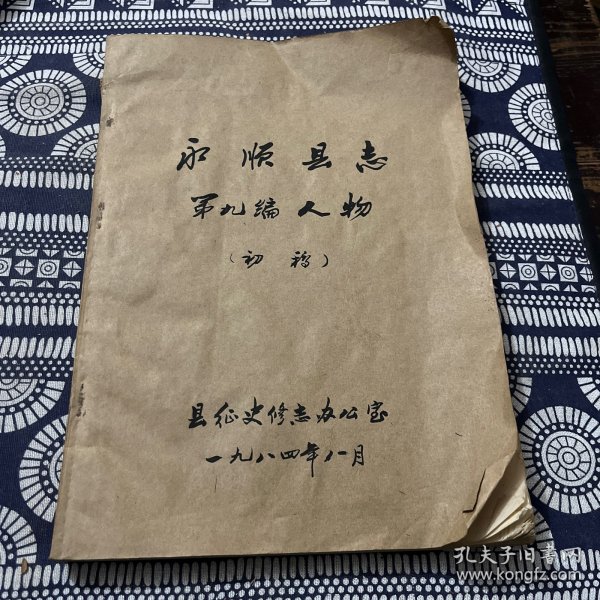 永顺县志
第九编 人物
（初稿）
县征史修志办公室
一九八四年八月
孔夫子旧书网
www.kongfz.com